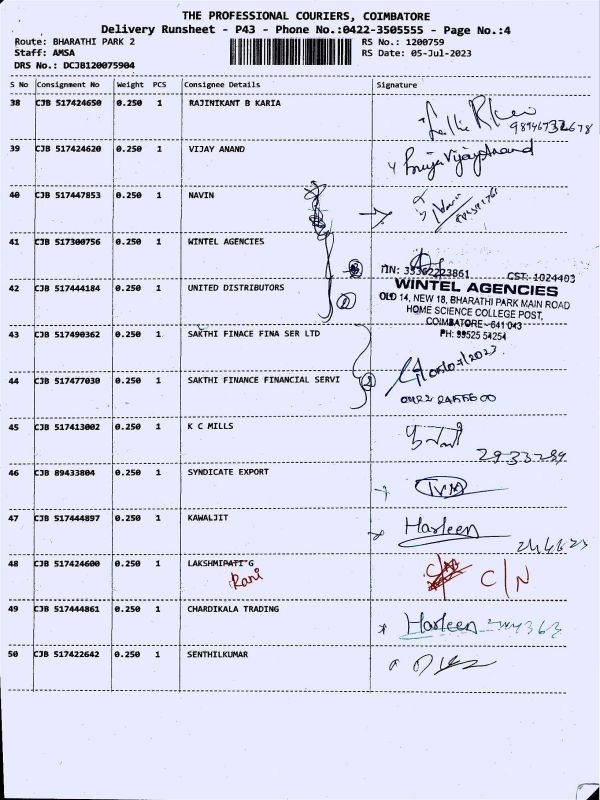 THE PROFESSIONAL COURIERS, COIMBATORE
Delivery Runsheet - P43 - Phone No.:0422-3505555 - Page No.:4
Route: BHARATHI PARK 2 RS No.: 1200759
Staff: AMSA RS Date: 05-Jul-2023
DRS No.: DCJB120075904
S No Consignment No Weight PCS Consignee Details Signature
38 CJB 517424650 0.250 1 RAJINIKANT B KARIA
39 CJB 517424620 0.250 1 VIJAY ANAND
40 CJB 517447853 0.250 1 NAVIN
41 CJB 517300756 0.250 1 WINTEL AGENCIES
TIN: 33362223861 CST: 1024403
42 CJB 517444184 0.250 1 UNITED DISTRIBUTORS WINTEL AGENCIES
OLD 14, NEW 18, BHARATHI PARK MAIN ROAD
HOME SCIENCE COLLEGE POST,
COIMBATORE - 641 043
PH: 99525 54254
43 CJB 517490362 0.250 1 SAKTHI FINACE FINA SER LTD
05/07/2023
44 CJB 517477030 0.250 1 SAKTHI FINANCE FINANCIAL SERVI 2
45 CJB 517413002 0.250 1 K C MILLS
46 CJB 89433804 0.250 1 SYNDICATE EXPORT
47 CJB 517444897 0.250 1 KAWALJIT Harleen
48 CJB 517424600 0.250 1 LAKSHMIPATI G C/N
Rani
49 CJB 517444861 0.250 1 CHARDIKALA TRADING Harleen
50 CJB 517422642 0.250 1 SENTHILKUMAR